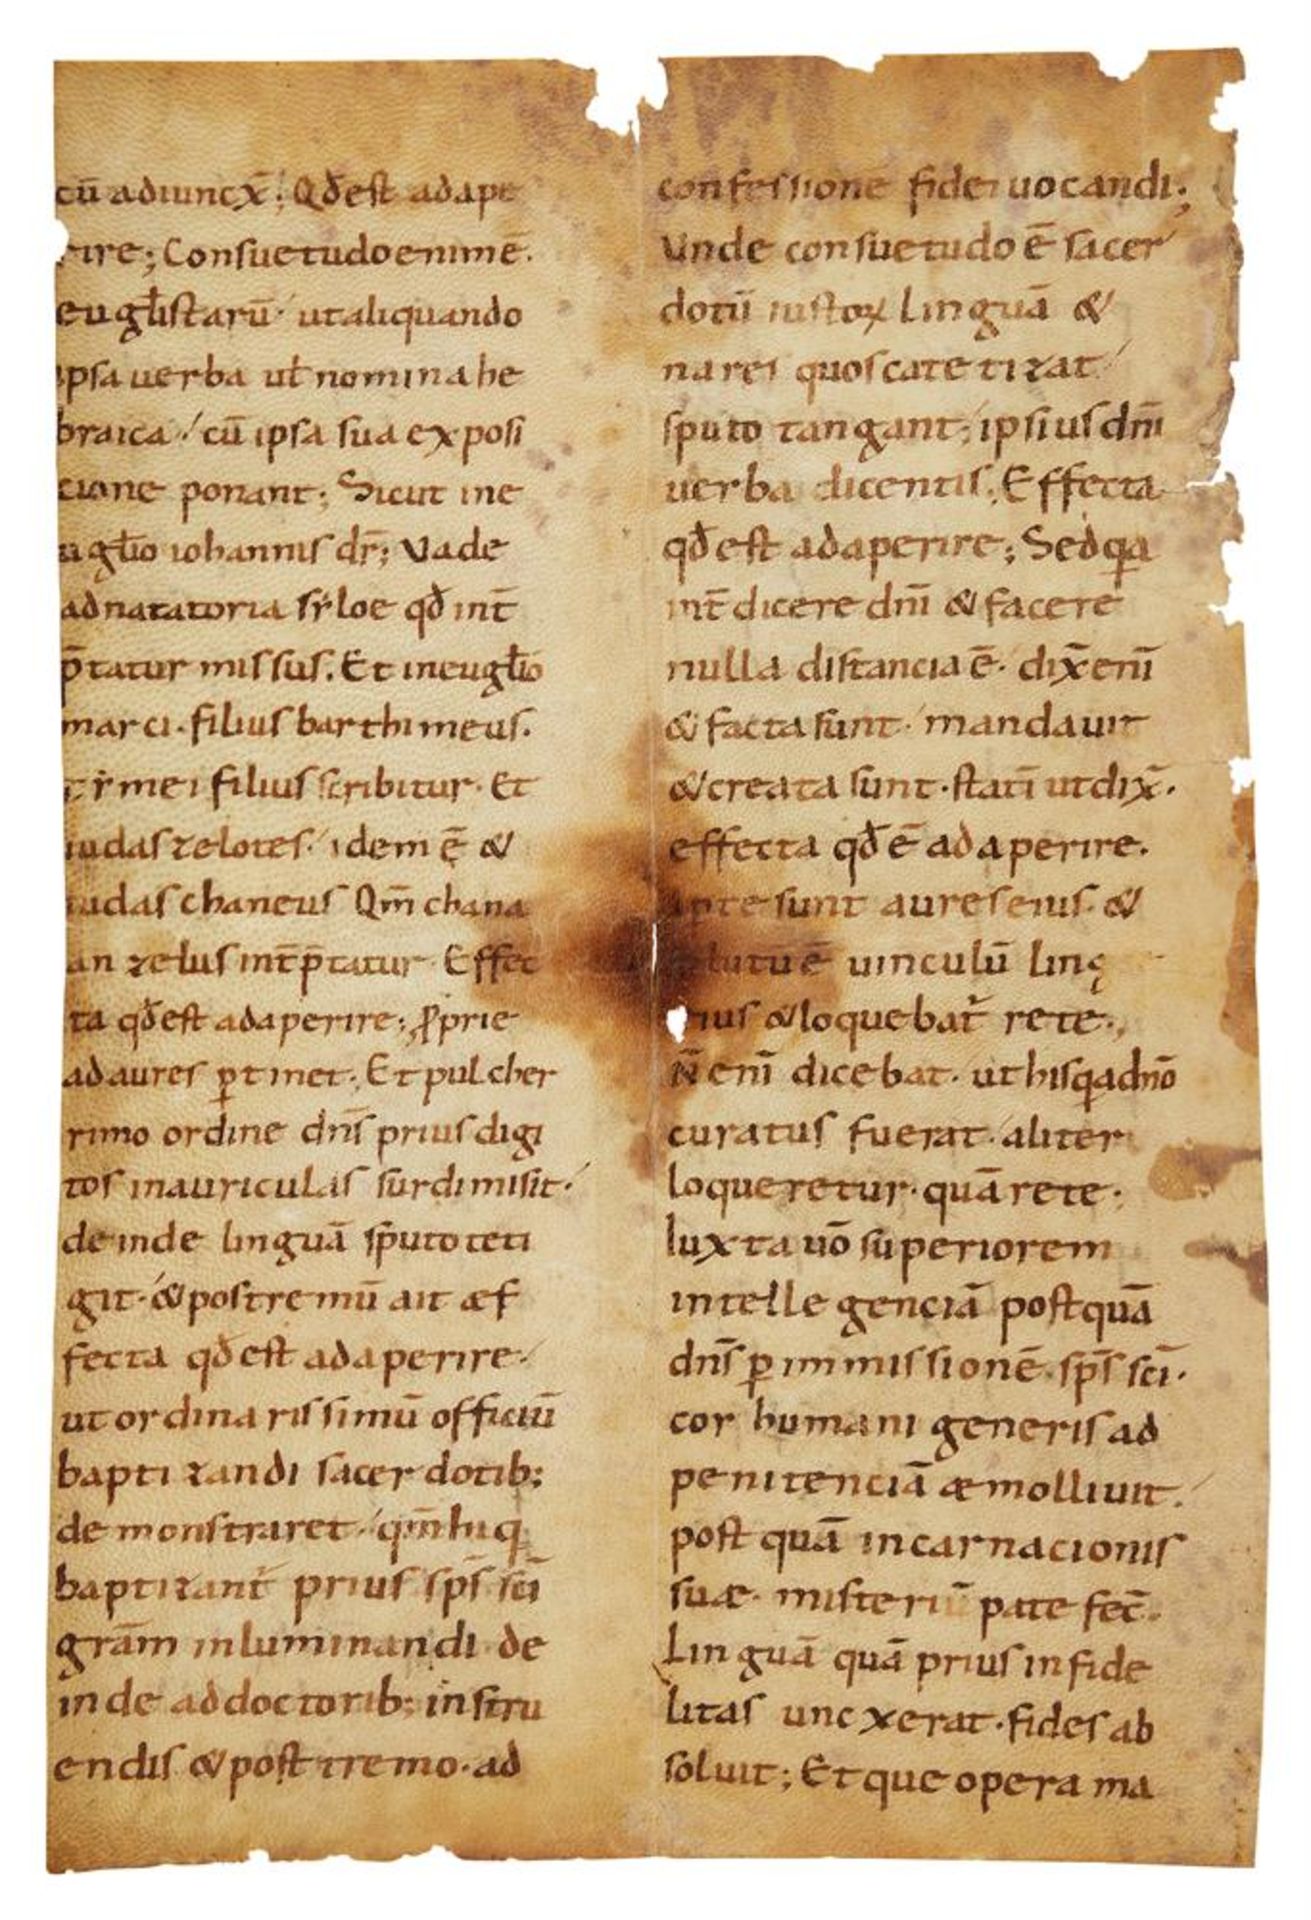 cū adiuncx̄; Qđ est adape
rire; Consuetudo enim ē.
eugl̄istarū utaliquando
ipsa uerba ut̄ nomina he
braica cū ipsa sua exposi
cione ponant; Sicut in e
ugl̄io iohannis dr̄; Vade
ad natatoria syloe qđ int̄
p̄tatur missus. Et in eugl̄io
marci. filius barthimeus.
tymei filius scribitur. Et
iudas zelotes idem ē &
iudas chaneus Qm̄ chana
an zelus int̄p̄tatur. Effec
ta qđ est adaperire; ꝓprie
ad aures ꝑtinet; Et pulcher
rimo ordine dn̄s prius digi
tos in auriculas surdi misit.
de inde linguā sputo teti
git. & postremū ait æf
fecta qđ est adaperire.
ut ordinarissimū officiū
baptizandi sacerdotib;
demonstraret. qm̄ hii q
baptizant̄ prius sp̄s sc̄i
grām inluminandi de
inde ad doctorib; instru
endis & post tremo. ad
confessione fidei uocandi;
Vnde consuetudo ē sacer
dotū iustoꝝ linguā &
nares quos catetizat
sputo tangant; ipsius dn̄i
uerba dicentis; Effecta
qđ est adaperire; Sed qa
int̄ dicere dn̄i & facere
nulla distancia ē. dix̄ enī
& facta sunt. mandauit
& creata sunt. statī ut dix̄.
effecta qđ ē adaperire.
apte sunt aures eius. &
solutū ē uinculū ling
eius & loquebat̄ rete.,
N̄ enī dicebat. ut his qa dn̄o
curatus fuerat. aliter
loqueretur. quā rete.
Iuxta uō superiorem
intellegenciā postquā
dn̄s ꝑ immissionē sp̄s sc̄i.
cor humani generis ad
penitenciā æmolliuit.
post quā incarnacionis
suæ. misteriū patefec̄.
Linguā quā prius infide
litas uncxerat. fides ab
soluit; Et que opera ma